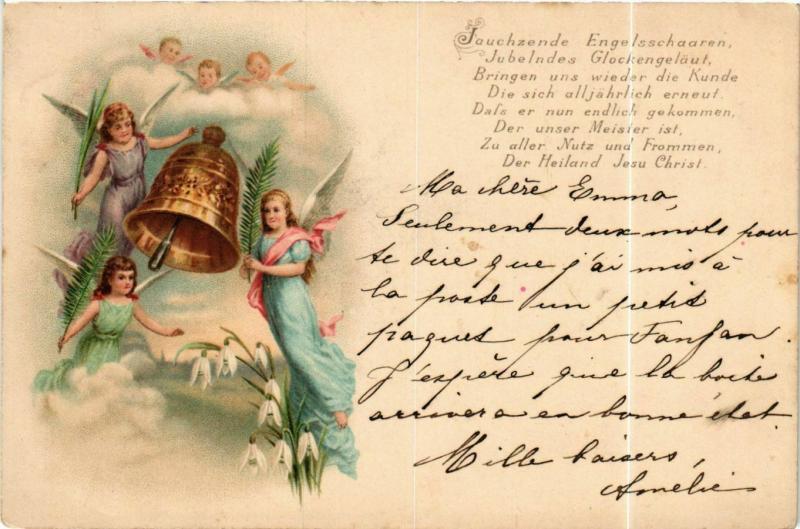 Jauchzende Engelsschaaren,
Jubelndes Glockengeläut,
Bringen uns wieder die Kunde
Die sich alljährlich erneut.
Dafs er nun endlich gekommen,
Der unser Meister ist,
Zu aller Nutz und Frommen,
Der Heiland Jesu Christ.
Ma chère Emma,
Seulement deux mots pour
te dire que j'ai mis à
la poste un petit
paquet pour Fanfan.
J'espère que la boite
arrivera en bonne état.
Mille baisers,
Amélie